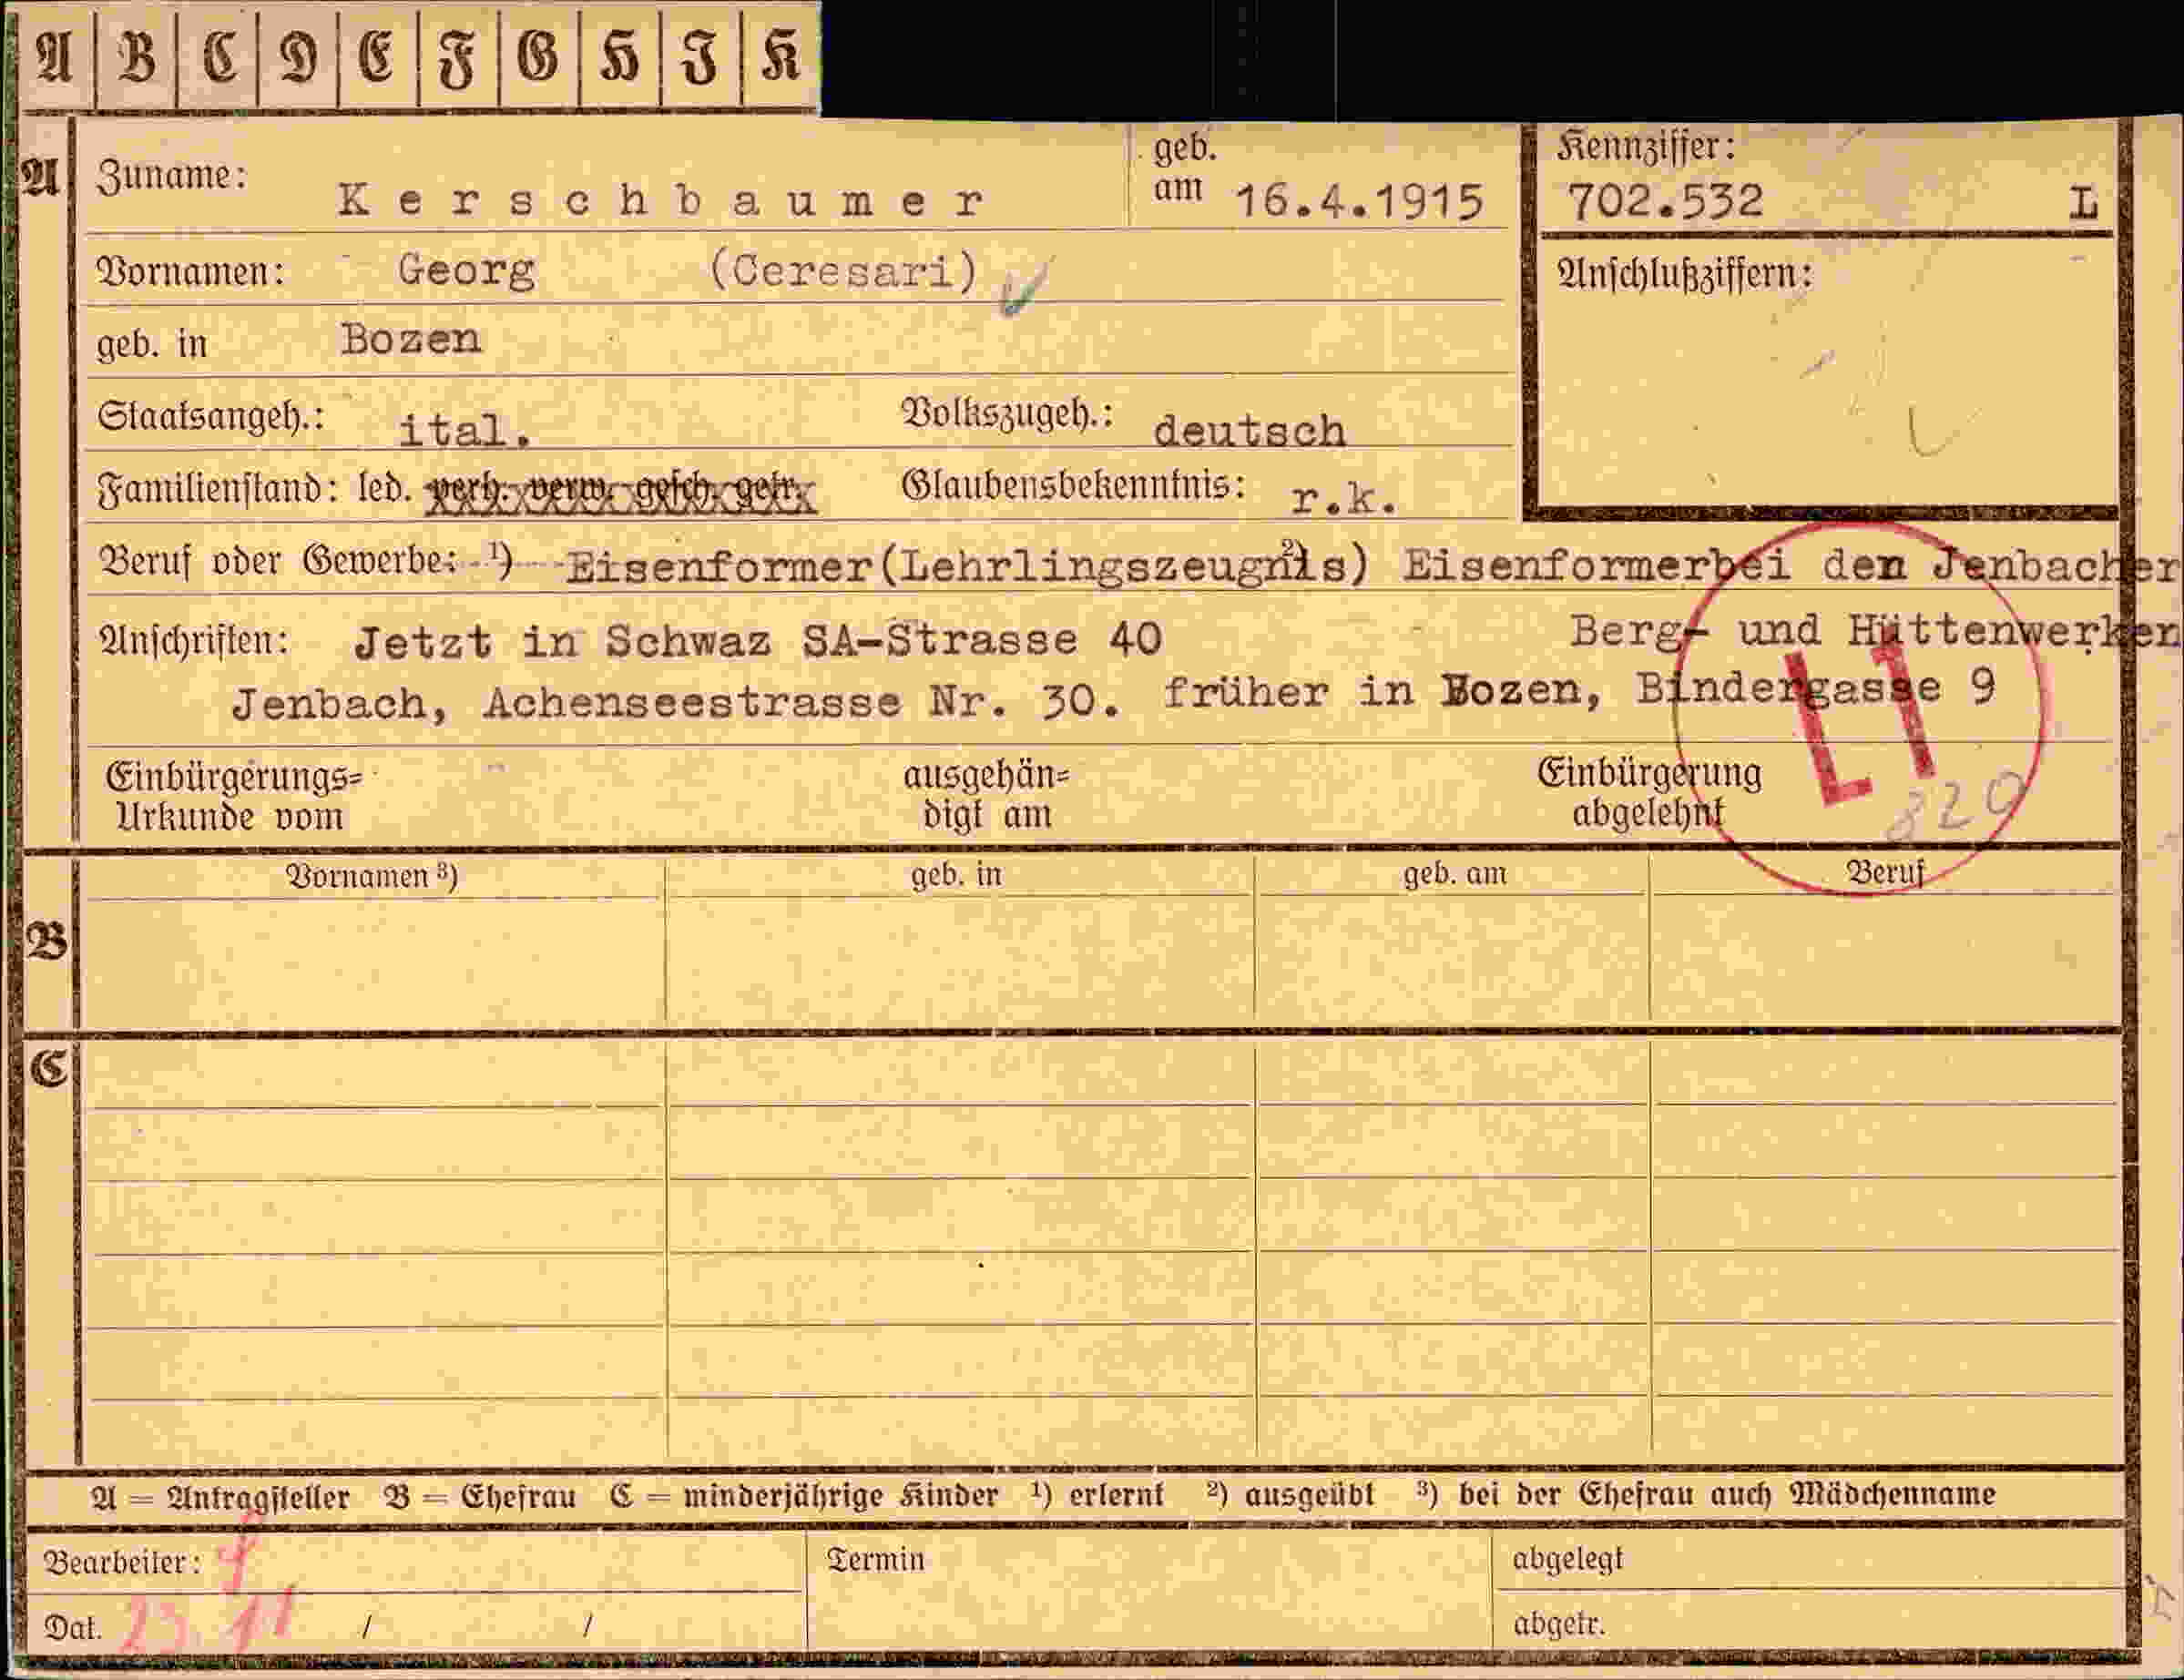 A B C D E F G H I K
A Zuname: Kerschbaumer geb. am 16.4.1915 Kennziffer: 702.532 L
Vornamen: Georg (Ceresari) Anschlußziffern:
geb. in Bozen
Staatsangeh.: ital. Volkszugeh.: deutsch
Familienstand: led. verh. verw. gesch. getr. Glaubensbekenntnis: r.k.
Beruf oder Gewerbe: ¹) Eisenformer(Lehrlingszeugnis) ²) Eisenformerbei den Jenbacher
Berg- und Hüttenwerken
Anschriften: Jetzt in Schwaz SA-Strasse 40
Jenbach, Achenseestrasse Nr. 30. früher in Bozen, Bindergasse 9
L1
Einbürgerungs= ausgehän= Einbürgerung
Urkunde vom digt am abgelehnt
820
Vornamen ³) geb. in geb. am Beruf
B
C
A = Antragsteller B = Ehefrau C = minderjährige Kinder ¹) erlernt ²) ausgeübt ³) bei der Ehefrau auch Mädchenname
Bearbeiter: Termin abgelegt
Dat. 23. 11 / / abgetr.